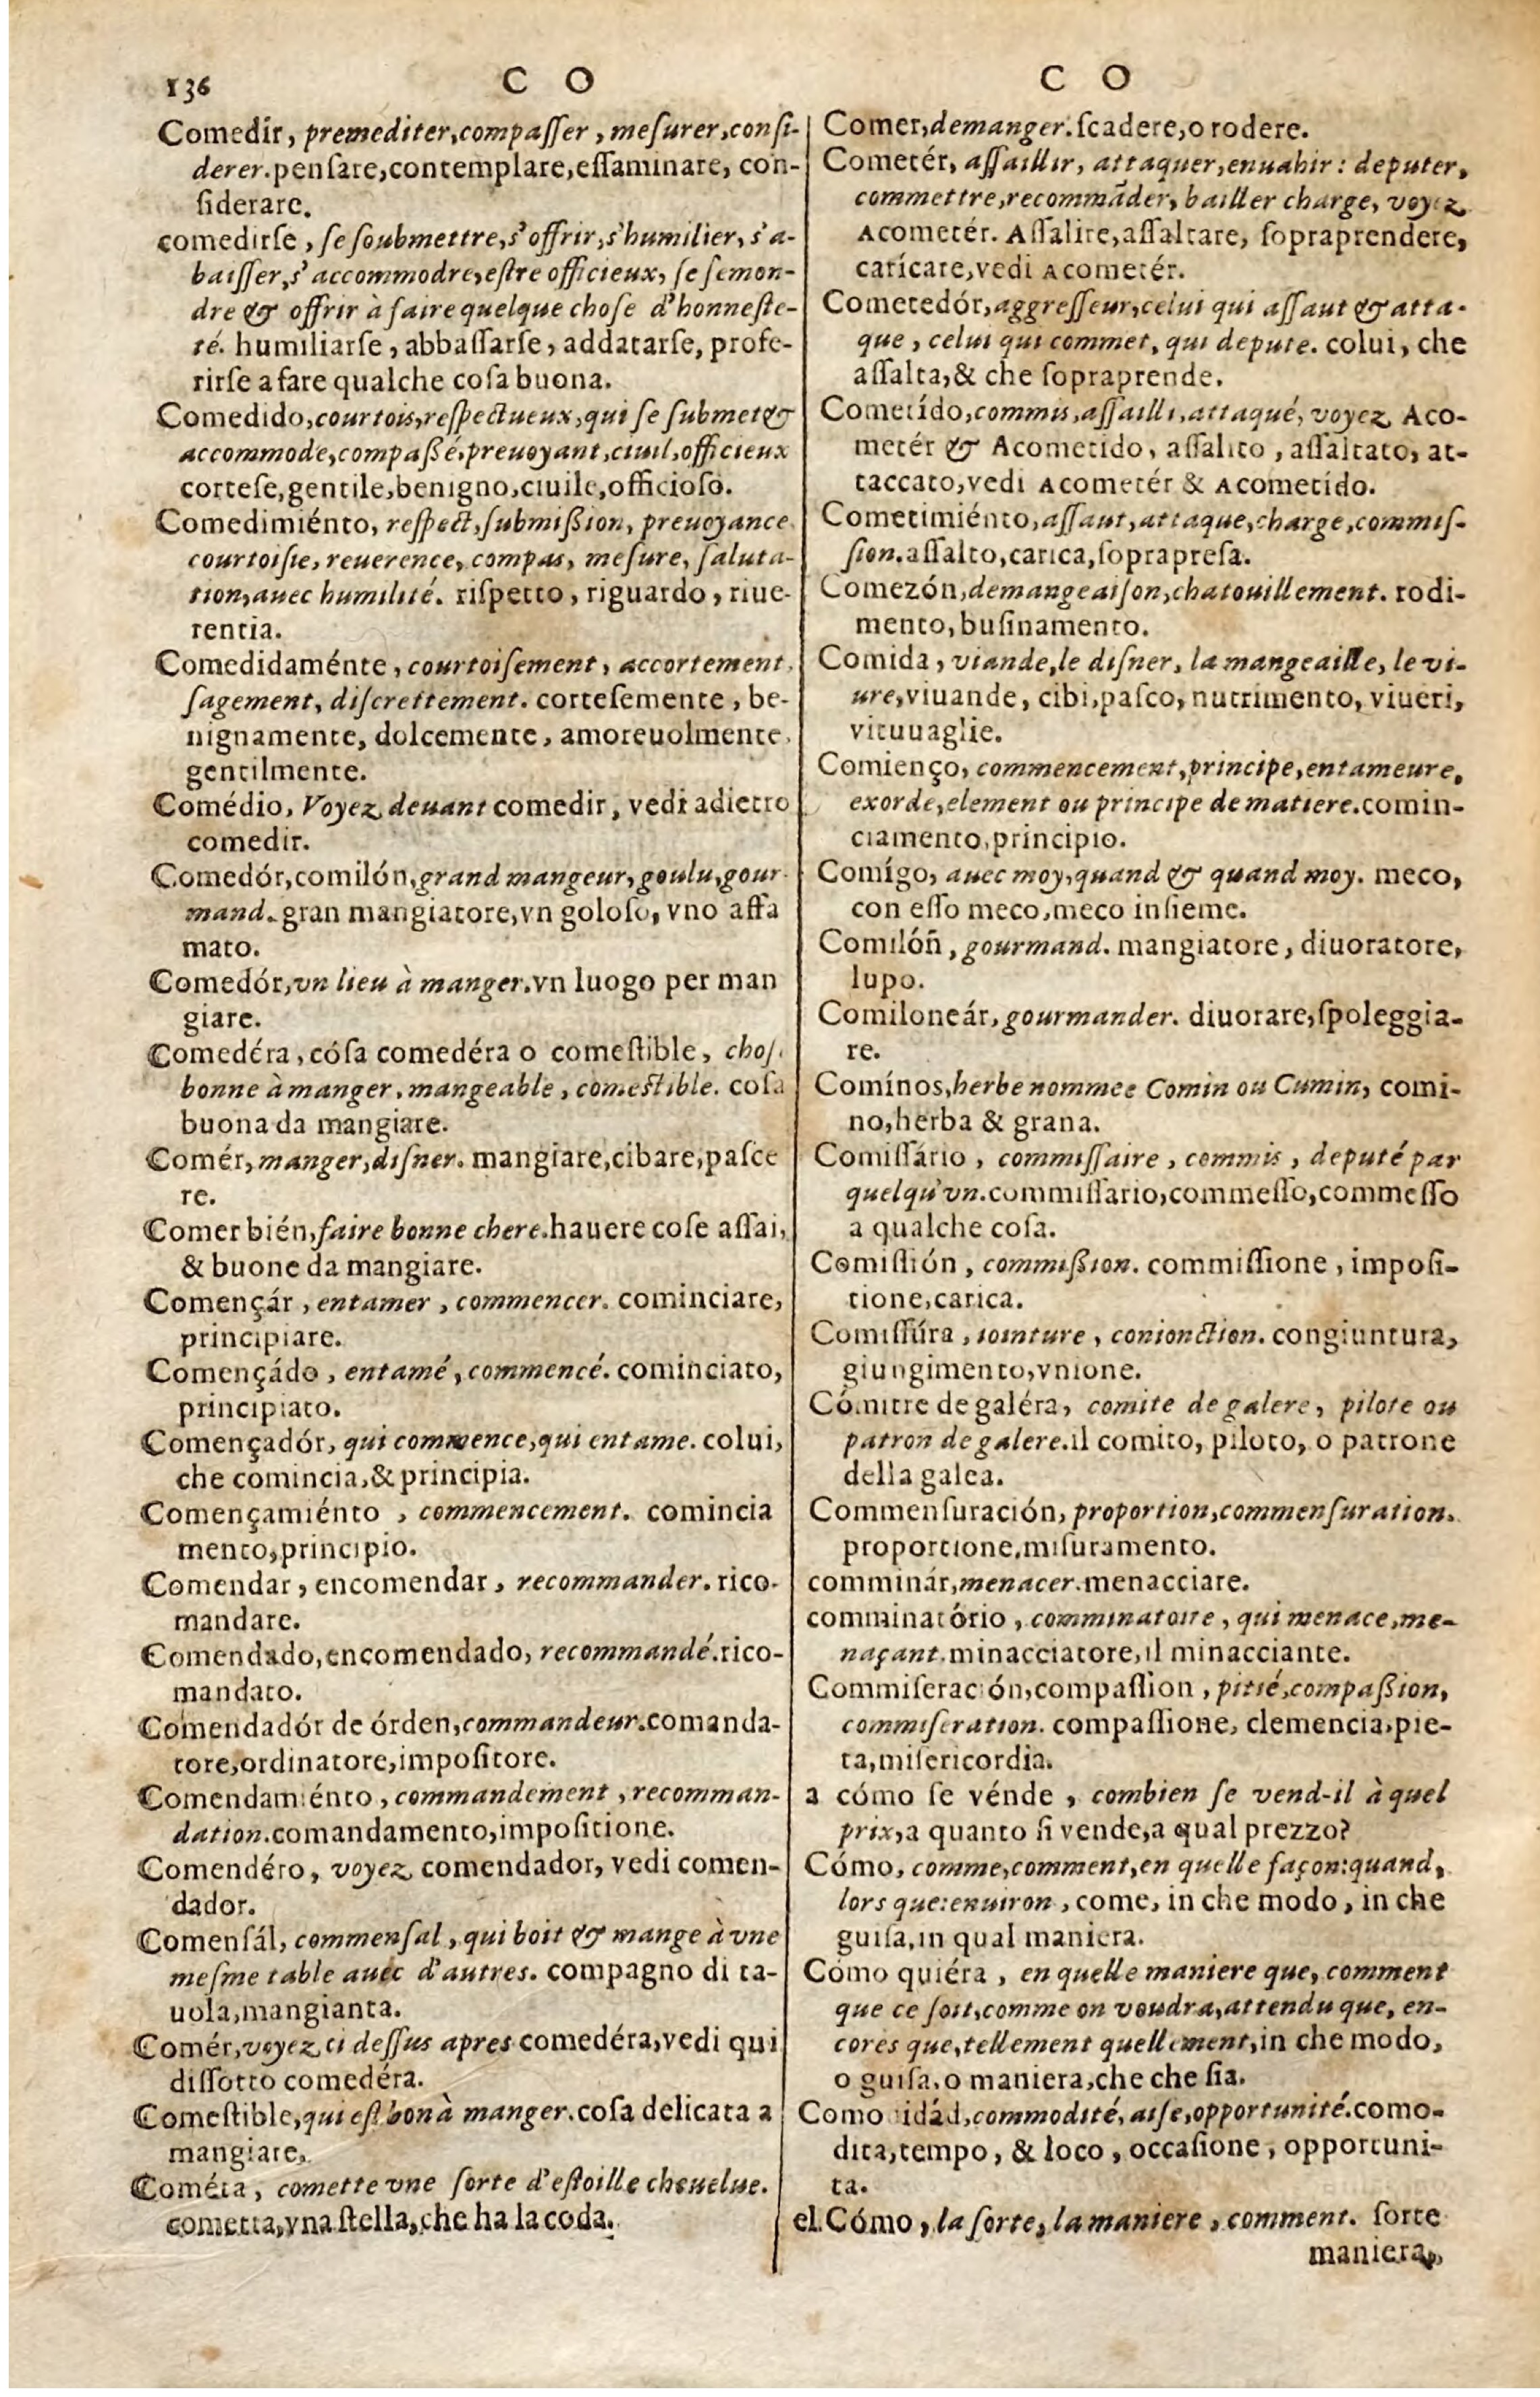 136
C O
Comedír, premediter, compaſſer, meſurer, conſi-
derer. penſare, contemplare, eſſaminare, con-
ſiderare.
comedirſe, ſe ſoubmettre, s'offrir, s'humilier, s'a-
baiſſer, s'accommodre, eſtre officieux, ſe ſemon-
dre & offrir à faire quelque choſe d'honneſte-
té. humiliarſe, abbaſſarſe, addatarſe, profe-
rirſe a fare qualche coſa buona.
Comedido, courtois, reſpectueux, qui ſe ſubmet &
accommode, compaßé, preuoyant, ciuil, officieux
corteſe, gentile, benigno, ciuile, officioſo.
Comedimiénto, reſpect, ſubmißion, preuoyance
courtoiſie, reuerence, compas, meſure, ſaluta-
tion, auec humilité. riſpetto, riguardo, riue-
rentia.
Comedidaménte, courtoiſement, accortement,
ſagement, diſcrettement. corteſemente, be-
nignamente, dolcemente, amoreuolmente,
gentilmente.
Comédio, Voyez deuant comedir, vedi adietro
comedir.
Comedór, comilón, grand mangeur, goulu, gour-
mand. gran mangiatore, vn goloſo, vno affa
mato.
Comedór, vn lieu à manger. vn luogo per man
giare.
Comedéra, cóſa comedéra o comeſtible, choſ.
bonne à manger, mangeable, comeſtible. coſa
buona da mangiare.
Comér, manger, diſner. mangiare, cibare, paſce
re.
Comer bién, faire bonne chere. hauere coſe aſſai,
& buone da mangiare.
Començár, entamer, commencer. cominciare,
principiare.
Començádo, entamé, commencé. cominciato,
principiato.
Començadór, qui commence, qui entame. colui,
che comincia, & principia.
Començamiénto, commencement. comincia
mento, principio.
Comendar, encomendar, recommander. rico-
mandare.
Comendado, encomendado, recommandé. rico-
mandato.
Comendadór de órden, commandeur. comanda-
tore, ordinatore, impoſitore.
Comendamiénto, commandement, recomman-
dation. comandamento, impoſitione.
Comendéro, voyez comendador, vedi comen-
dador.
Comenſál, commenſal, qui boit & mange à vne
meſme table auec d'autres. compagno di ta-
uola, mangianta.
Comér, voyez ci deſſus apres comedéra, vedi qui
diſſotto comedéra.
Comeſtible, qui eſt bon à manger. coſa delicata a
mangiare,
Cométa, comette vne ſorte d'eſtoille cheuelue.
cometta, vna ſtella, che ha la coda.
C O
Comer, demanger. ſcadere, o rodere.
Cometér, aſſaillir, attaquer, enuahir: deputer,
commettre, recommãder, bailler charge, voyez
Acometér. Aſſalire, aſſaltare, ſopraprendere,
carícare, vedi Acometér.
Cometedór, aggreſſeur, celui qui aſſaut & atta-
que, celui qui commet, qui depute. colui, che
aſſalta, & che ſopraprende.
Cometído, commis, aſſailli, attaqué, voyez Aco-
metér & Acometido, aſſalito, aſſaltato, at-
taccato, vedi Acometér & Acometído.
Cometimiénto, aſſaut, attaque, charge, commiſ-
ſion. aſſalto, carica, ſoprapreſa.
Comezón, demangeaiſon, chatouillement. rodi-
mento, buſinamento.
Comida, viande, le diſner, la mangeaille, le vi-
ure, viuande, cibi, paſco, nutrimento, viueri,
vituuaglie.
Comienço, commencement, principe, entameure,
exorde, element ou principe de matiere. comin-
ciamento, principio.
Comígo, auec moy, quand & quand moy. meco,
con eſſo meco, meco inſieme.
Comilón̄, gourmand. mangiatore, diuoratore,
lupo.
Comiloneár, gourmander. diuorare, ſpoleggia-
re.
Comínos, herbe nommee Comin ou Cumin, comi-
no, herba & grana.
Comiſſário, commiſſaire, commis, deputé par
quelqu'vn. commiſſario, commeſſo, commeſſo
a qualche coſa.
Comiſſión, commißion. commiſſione, impoſi-
tione, carica.
Comiſſúra, iointure, conionction. congiuntura,
giungimento, vnione.
Cómitre de galéra, comite de galere, pilote ou
patron de galere. il comito, piloto, o patrone
della galea.
Commenſuración, proportion, commenſuration.
proportione, miſuramento.
comminár, menacer. menacciare.
comminatório, comminatoire, qui menace, me-
naçant. minacciatore, il minacciante.
Commiſeración, compaſſion, pitié, compaßion,
commiſeration. compaſſione, clemencia, pie-
ta, miſericordia.
a cómo ſe vénde, combien ſe vend-il à quel
prix, a quanto ſi vende, a qual prezzo?
Cómo, comme, comment, en quelle façon: quand,
lors que: enuiron, come, in che modo, in che
guiſa, in qual maniera.
Cómo quiéra, en quelle maniere que, comment
que ce ſoit, comme on voudra, attendu que, en-
cores que, tellement quellement, in che modo,
o guiſa, o maniera, che che ſia.
Como idád, commodité, aiſe, opportunité. como-
dita, tempo, & loco, occaſione, opportuni-
ta.
el Cómo, la ſorte, la maniere, comment. ſorte
maniera,